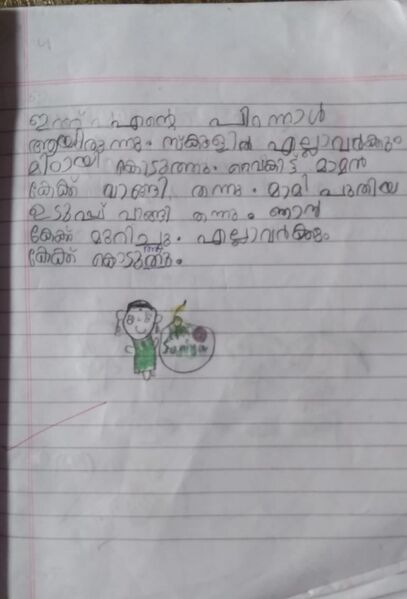 ഇന്ന് എൻ്റെ പിറന്നാൾ
ആയിരുന്നു. സ്കൂളിൽ എല്ലാവർക്കും
മിഠായി കൊടുത്തു. വൈകിട്ട് മാമൻ
കേക്ക് വാങ്ങി തന്നു. മാമി പുതിയ
ഉടുപ്പ് വാങ്ങി തന്നു. ഞാൻ
കേക്ക് മുറിച്ചു. എല്ലാവർക്കും
കേക്ക് കൊടുത്തു.